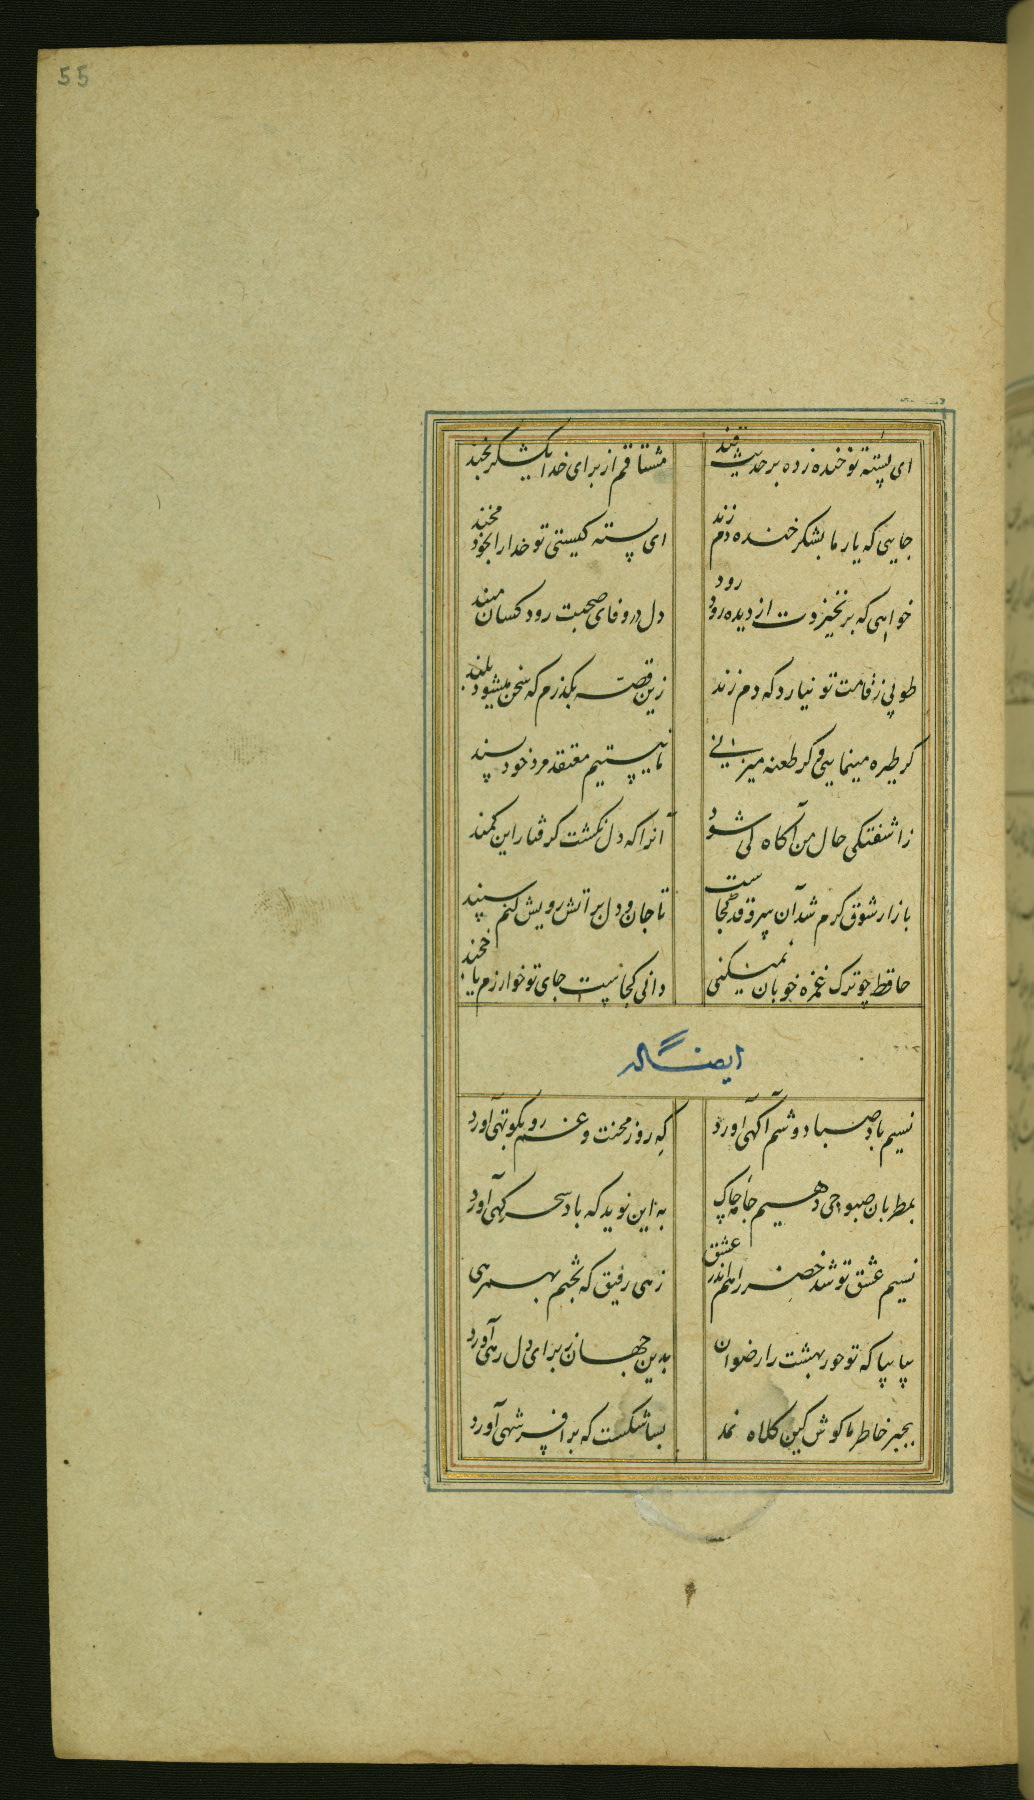 55
ای پسته تو خنده زده بر حدیث قند
مشتاقم از برای خدا یکشکر بخند
جایی که یار ما بشکر خنده دم زند
ای پسته کیستی تو خدا را بخود مخند
خواهی که برنخیزدت از دیده رود رود
دل در وفای صحبت رود کسان مبند
طوبی ز قامت تو نیارد که دم زند
زین قصه بگذرم که سخن میشود بلند
گر طیره مینمایی و گر طعنه میزنی
ما نیستیم معتقد مرد خود پسند
ز اشفتگی حال من آگاه کی شود
آنرا که دل نگشت گرفتار این کمند
بازار شوق گرم شد آن سرو قد کجاست
تا جان و دل بر اتش رویش کنم سپند
حافظ چو ترک غمزه خوبان نمیکنی
دانی کجاست جای تو خوارزم یا خجند
ایضاله
نسیم باد صبا دوشم آگهی آورد
که روز محنت و غم رو بکوتهی آورد
بمطربان صبوحی دهیم جامه چاک
به این نوید که باد سحرگهی آورد
نسیم عشق تو شد خضر راهم اندر عشق
زهی رفیق که بختم بهمرهی
بیا بیا که تو حور بهشت را رضوان
بدین جهان ز برای دل رهی آورد
بجبر خاطر ما کوش کین کلاه نمد
بسا شکست که بر افسر شهی آورد